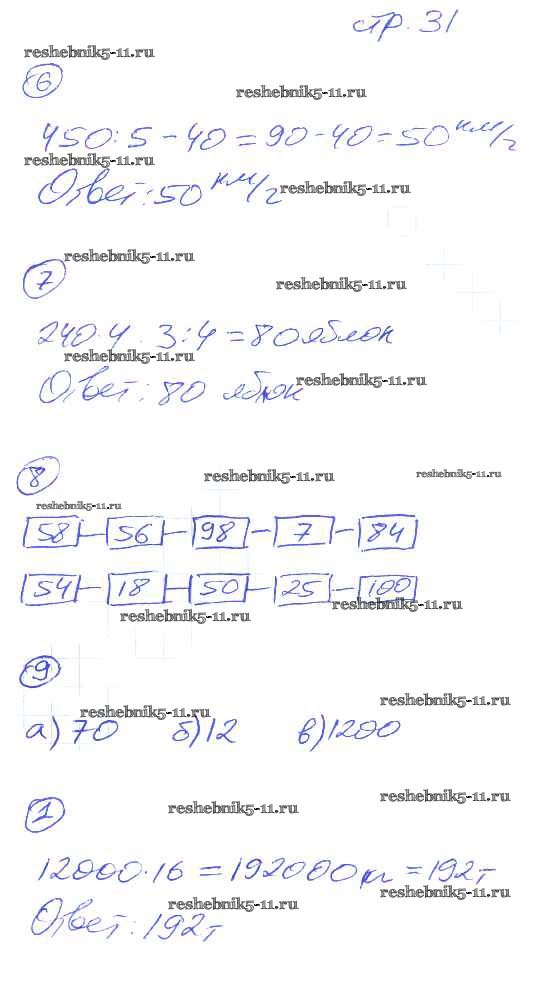 стр. 31
reshebnik5-11.ru
6
reshebnik5-11.ru
450:5-40=90-40=50 км/г
reshebnik5-11.ru
Ответ: 50 км/г
reshebnik5-11.ru
reshebnik5-11.ru
7
reshebnik5-11.ru
240·4·3:4=80 яблок
reshebnik5-11.ru
Ответ: 80 яблок
reshebnik5-11.ru
8
reshebnik5-11.ru
reshebnik5-11.ru
reshebnik5-11.ru
58-56-98-7-84
54-18-50-25-100
reshebnik5-11.ru
reshebnik5-11.ru
9
reshebnik5-11.ru
reshebnik5-11.ru
а) 70 б) 12 в) 1200
reshebnik5-11.ru
1
reshebnik5-11.ru
12000·16=192000 кг=192 т
reshebnik5-11.ru
Ответ: 192 т
reshebnik5-11.ru